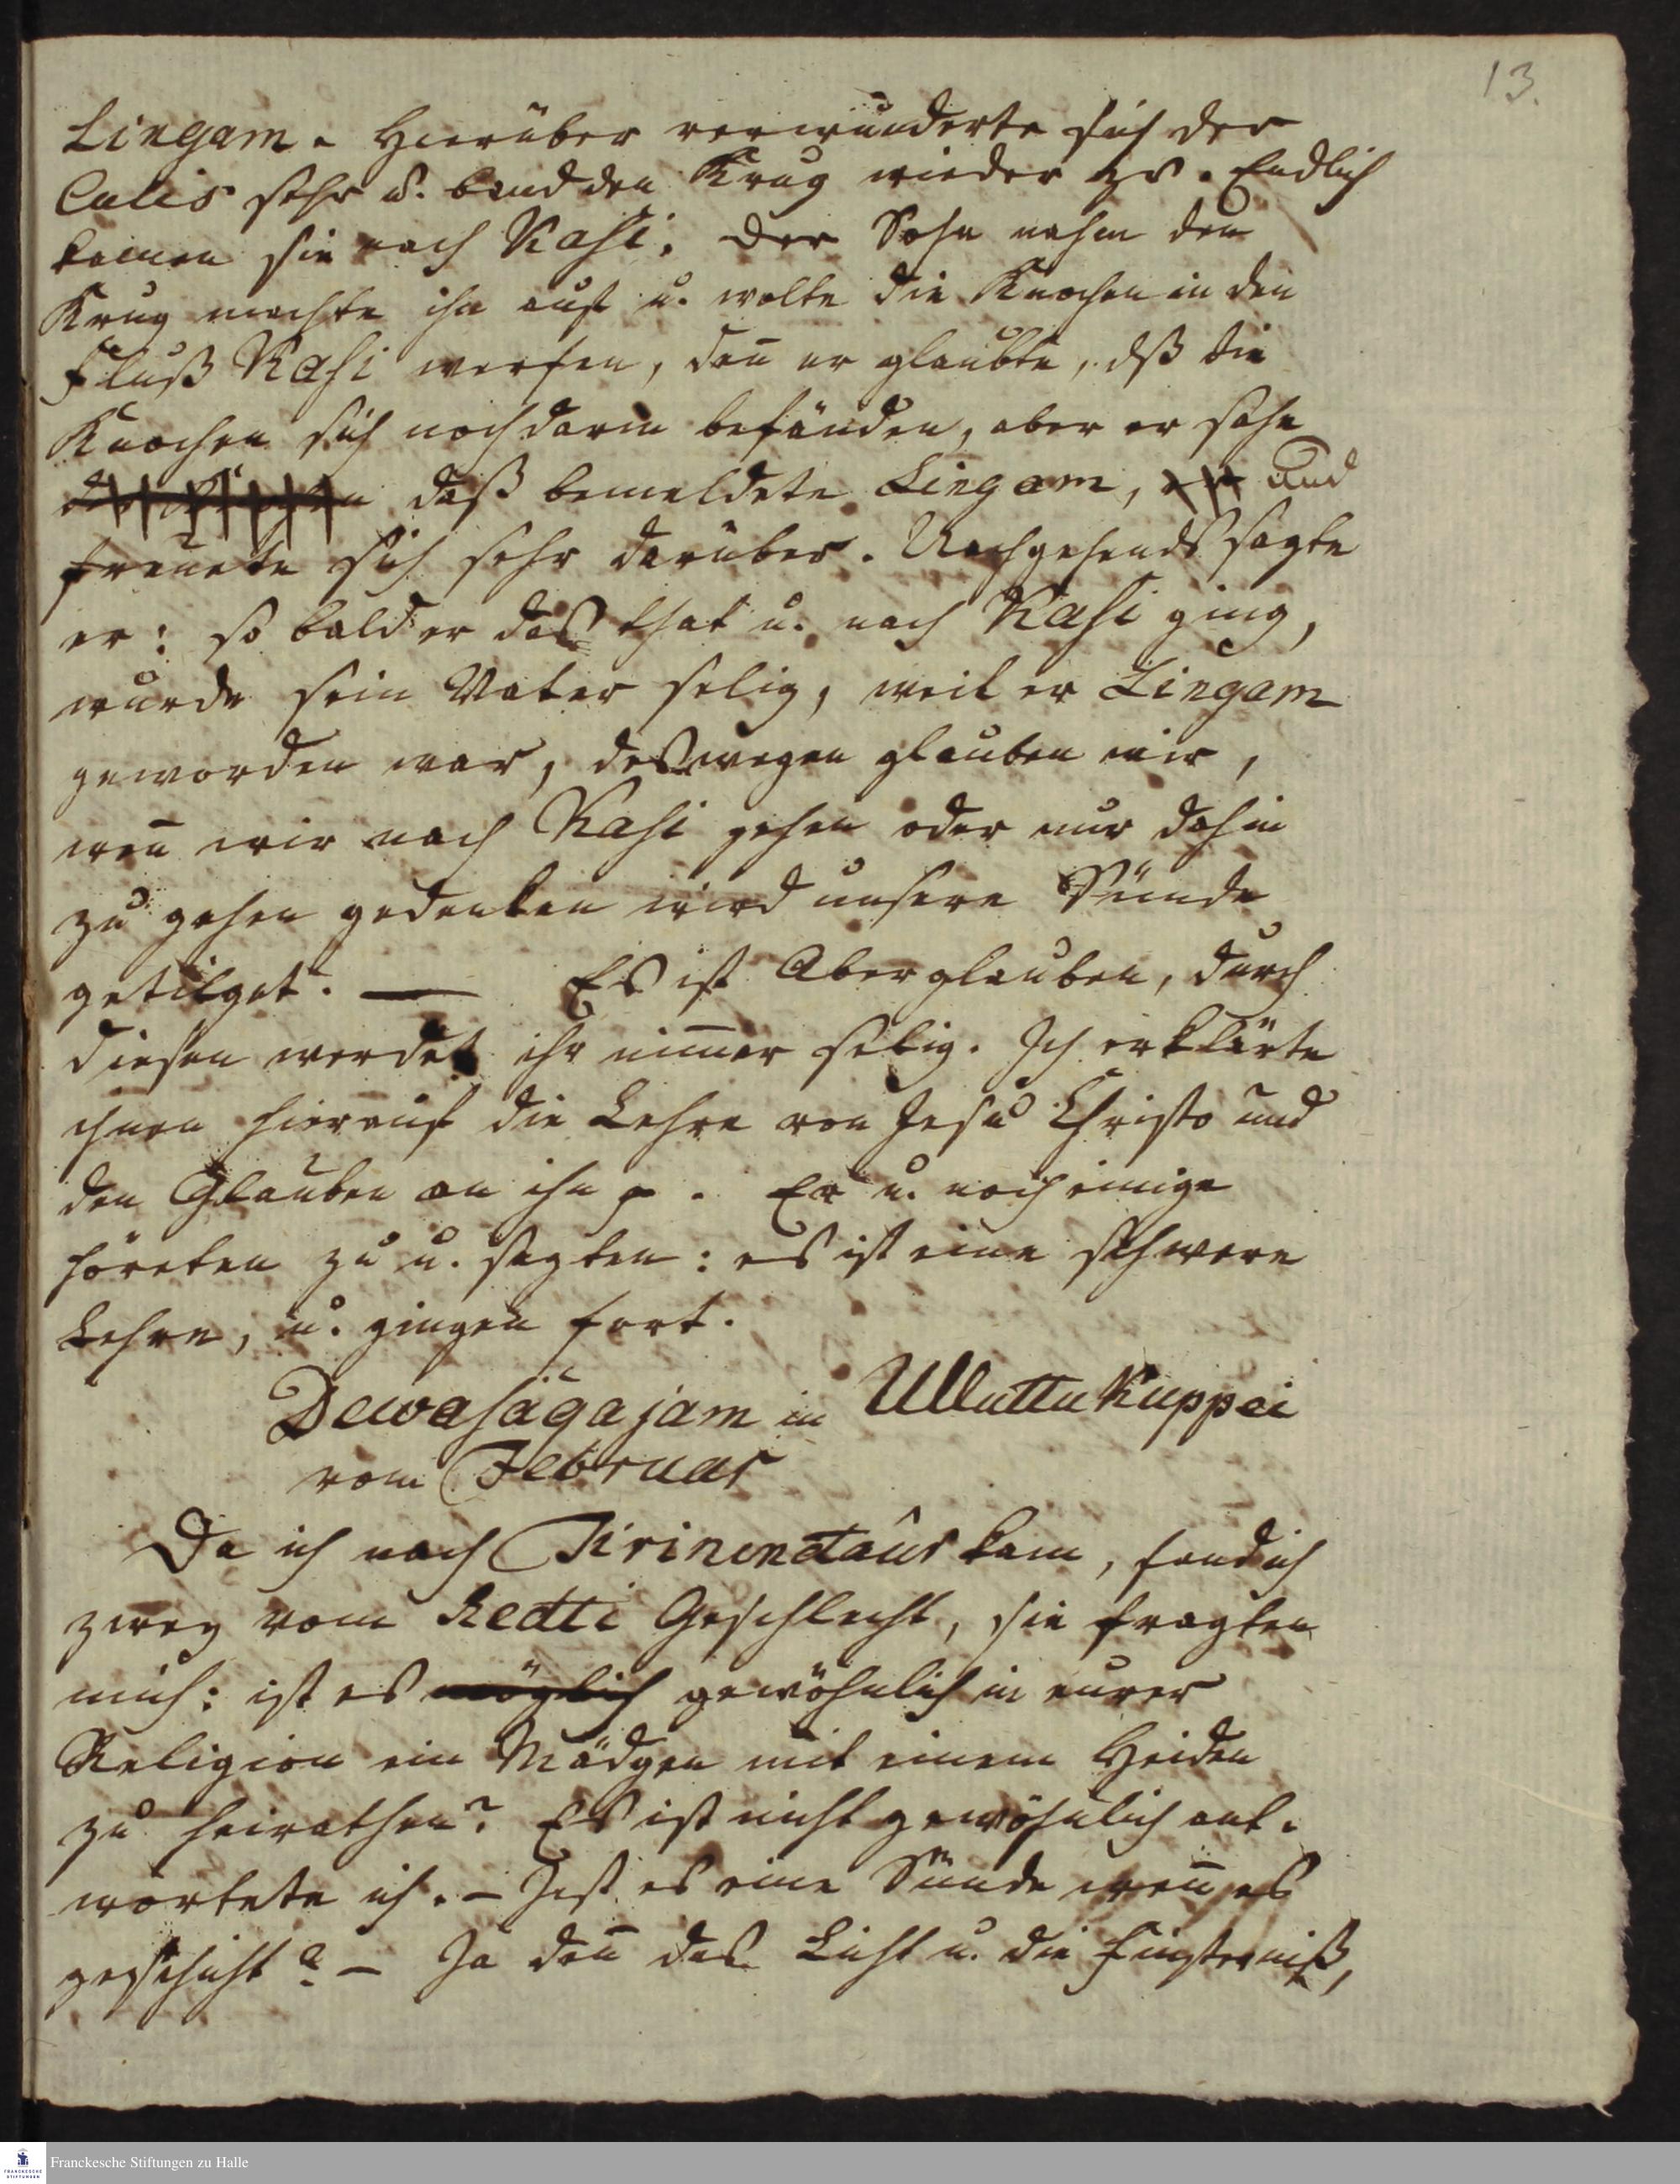 13.
Lingam. Hierüber verwunderte sich der
Culis sehr u. band den Krug wieder zu. Endlich
kamen sie nach Kasi. Der Sohn nahm den
Krug machte ihn auf u. wolte die Knochen in den
Fluß Kasi werfen, den̄ er glaubte, dß die
Knochen sich noch darin befänden, aber er sahe
daß bemeldete Lingam, und
freuete sich sehr darüber. Nachgehends sagte
er: so bald er das that u. nach Kasi ging,
wurde sein Vater selig, weil er Lingam
geworden war, deswegen glauben wir,
wen̄ wir nach Kasi gehen oder nur dahin
zu gehen gedenken wird unsere Sünde
getilget. — Es ist Aberglauben, durch
diesen werdet ihr nim̄er selig. Ich erklärte
ihnen hierauf die Lehre von Jesu Christo und
den Glauben an ihn p. Er u. noch einige
höreten zu u. sagten: es ist eine schwere
Lehre, u. gingen fort.
Dewasagajam in Ulluttukuppei
vom Februar
Da ich nach Kirinendaûr kam, fand ich
zwey vom Redti Geschlecht, sie fragten
mich: ist es möglich gewöhnlich in eurer
Religion ein Mädgen mit einem Heiden
zu heirathen? Es ist nicht gewöhnlich ant-
wortete ich. – Ist es eine Sünde wen̄ es
geschicht? – Ja den̄ das Licht u. die Finsterniß,
Franckesche Stiftungen zu Halle